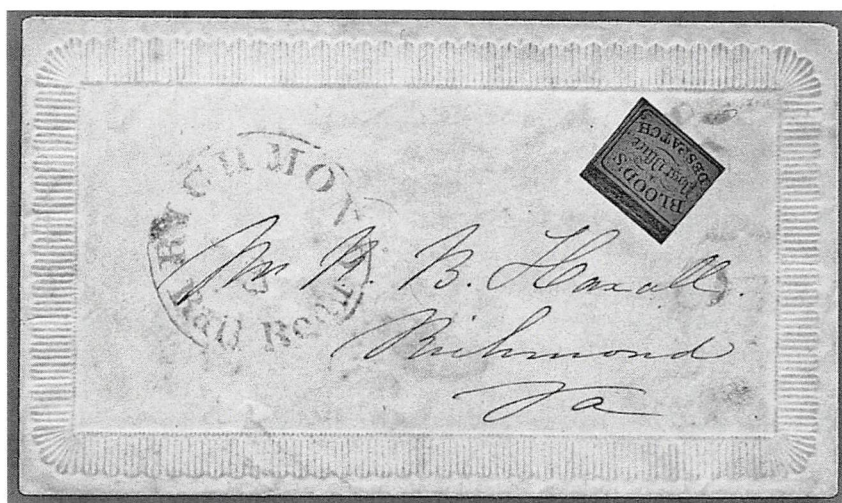 BLOOD'S
Post Office
DESPATCH
RICHMON
Rail Road
Mr B. Haxall.
Richmond
Va